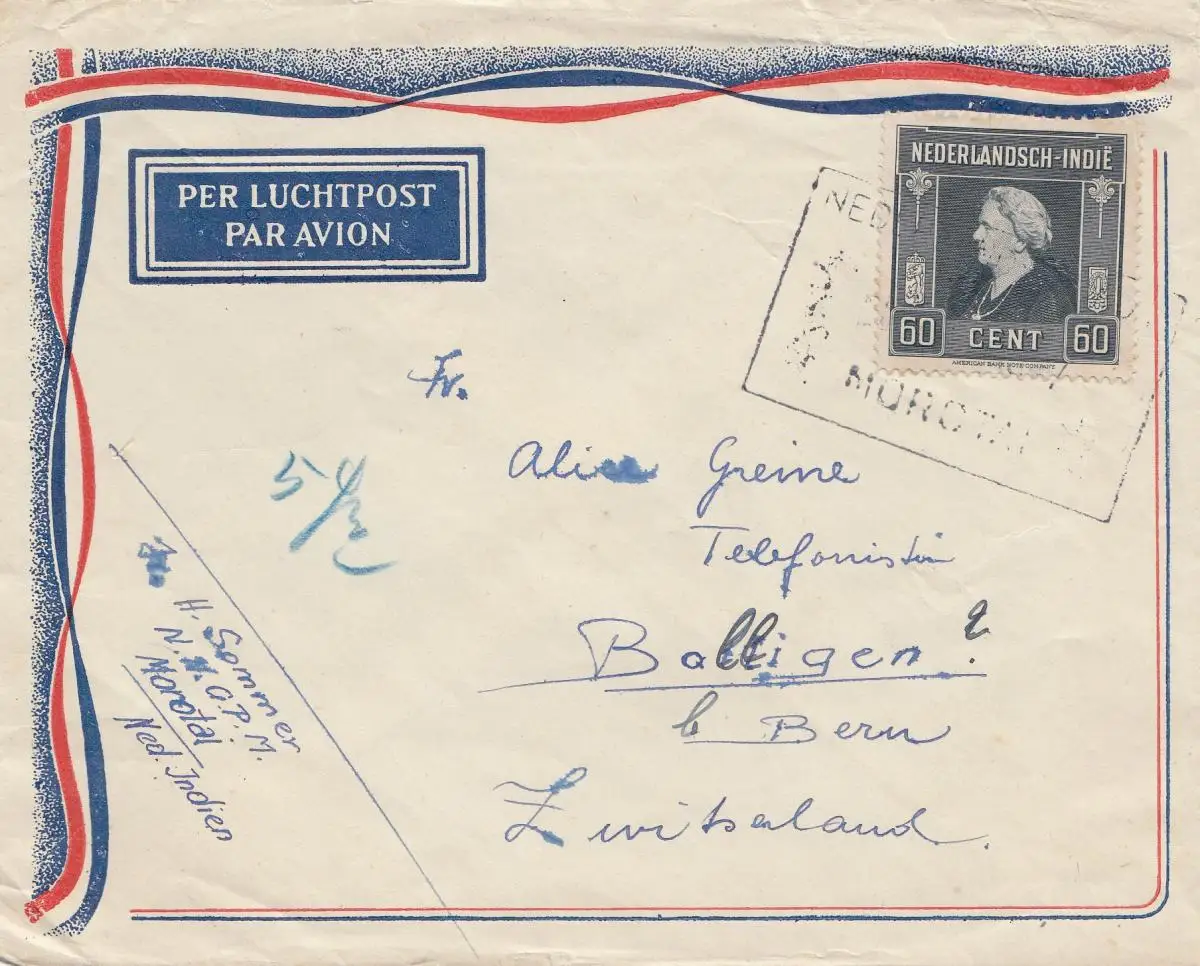 PER LUCHTPOST
PAR AVION
NEDERLANDSCH-INDIË
60 CENT 60
AMERICAN BANK NOTE COMPANY
NED
MOROTAI
Fr.
Alice Greine
Telefonistin
Balligen ?
b Bern
Zwitserland.
5
H. Sommer
N. G.P.M.
Morotai
Ned. Indien